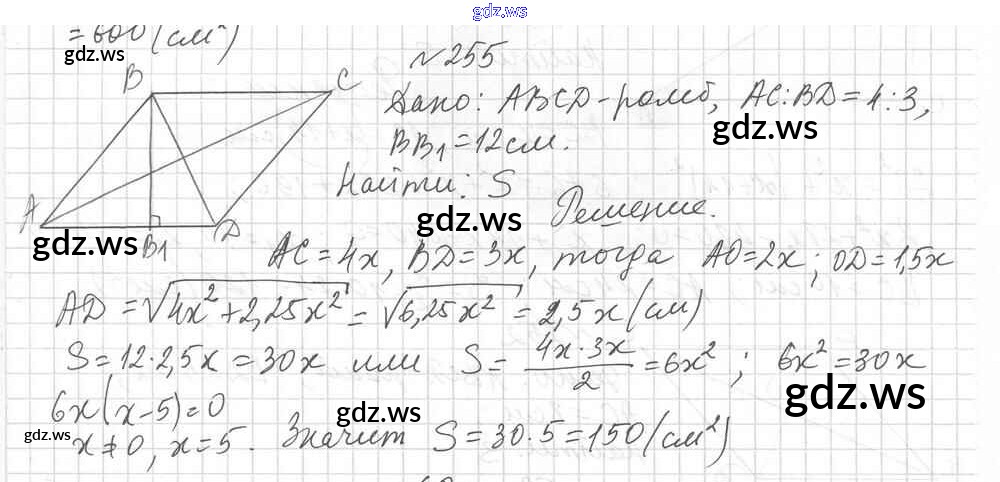 gdz.ws
= 600 (см²)
gdz.ws
№255
Дано: ABCD-ромб, AC:BD=4:3,
gdz.ws
BB₁=12см.
Найти: S
gdz.ws
Решение.
B C
A B₁ D
gdz.ws
AC=4x, BD=3x, тогда AO=2x; OD=1,5x
AD=√4x²+2,25x² = √6,25x² = 2,5x (см)
S=12·2,5x=30x или S= 4x·3x/2 =6x²; 6x²=30x
gdz.ws
6x(x-5)=0
gdz.ws
gdz.ws
x≠0, x=5. Значит S=30·5=150 (см²)